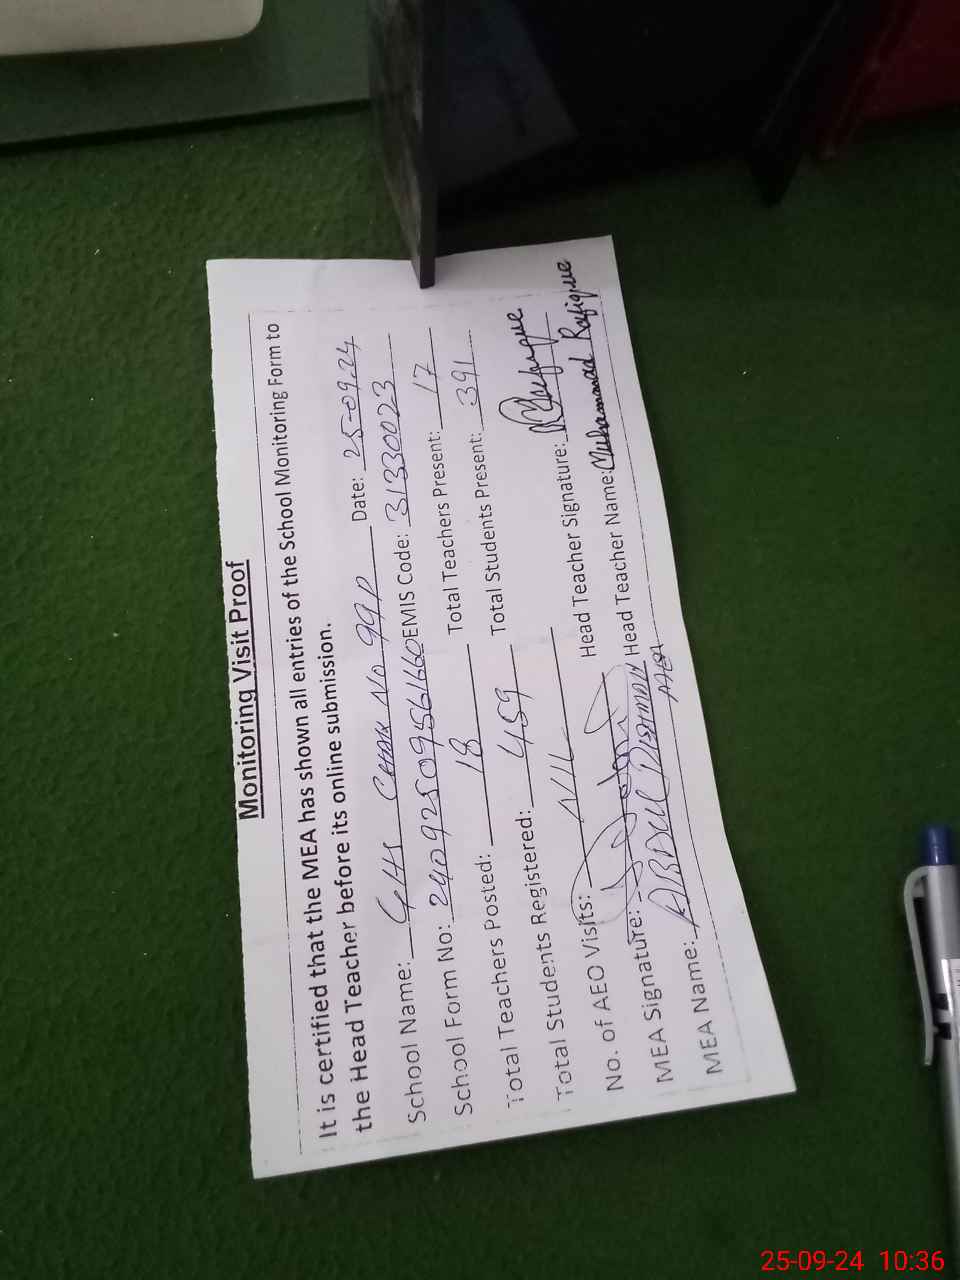 Monitoring Visit Proof
It is certified that the MEA has shown all entries of the School Monitoring Form to
the Head Teacher before its online submission.
School Name: GHS Chak No 99P Date: 25-09-24
School Form No: 2409250956160 EMIS Code: 31330023
Total Teachers Posted: 18 Total Teachers Present: 17
Total Students Registered: 459 Total Students Present: 391
No. of AEO Visits: NIL
MEA Signature: Head Teacher Signature:
MEA Name: ABDUL Head Teacher Name: Muhammad Rafique
25-09-24 10:36